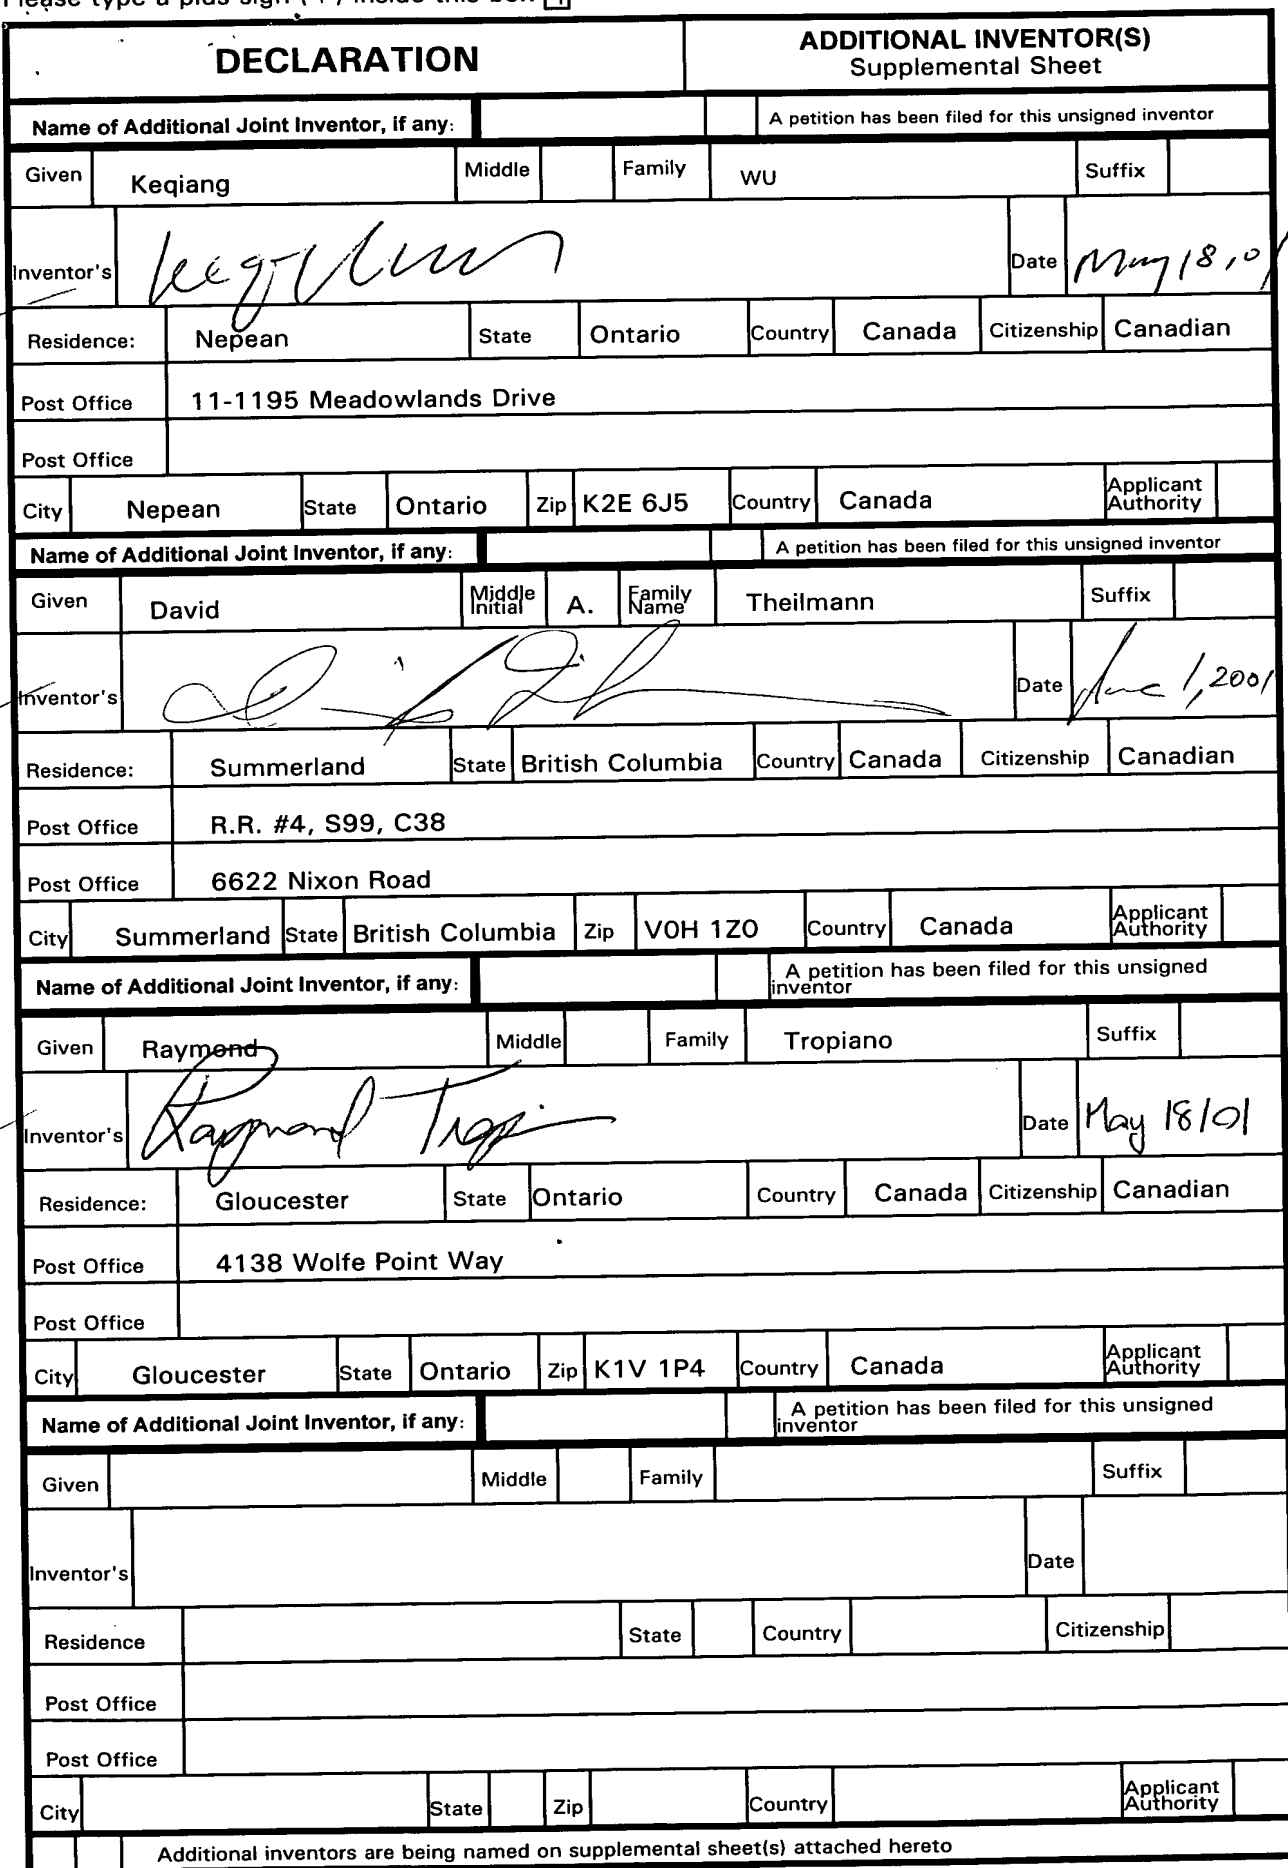 Please type a plus sign (+) inside this box
DECLARATION
ADDITIONAL INVENTOR(S)
Supplemental Sheet
Name of Additional Joint Inventor, if any: A petition has been filed for this unsigned inventor
Given Keqiang Middle Family WU Suffix
Inventor's Date May 18, 01
Residence: Nepean State Ontario Country Canada Citizenship Canadian
Post Office 11-1195 Meadowlands Drive
Post Office
City Nepean State Ontario Zip K2E 6J5 Country Canada Applicant Authority
Name of Additional Joint Inventor, if any: A petition has been filed for this unsigned inventor
Given David Middle Initial A. Family Name Theilmann Suffix
Inventor's Date June 1, 2001
Residence: Summerland State British Columbia Country Canada Citizenship Canadian
Post Office R.R. #4, S99, C38
Post Office 6622 Nixon Road
City Summerland State British Columbia Zip V0H 1Z0 Country Canada Applicant Authority
Name of Additional Joint Inventor, if any: A petition has been filed for this unsigned
inventor
Given Raymond Middle Family Tropiano Suffix
Inventor's Raymond Date May 18/01
Residence: Gloucester State Ontario Country Canada Citizenship Canadian
Post Office 4138 Wolfe Point Way
Post Office
City Gloucester State Ontario Zip K1V 1P4 Country Canada Applicant Authority
Name of Additional Joint Inventor, if any: A petition has been filed for this unsigned
inventor
Given Middle Family Suffix
Inventor's Date
Residence State Country Citizenship
Post Office
Post Office
City State Zip Country Applicant Authority
Additional inventors are being named on supplemental sheet(s) attached hereto